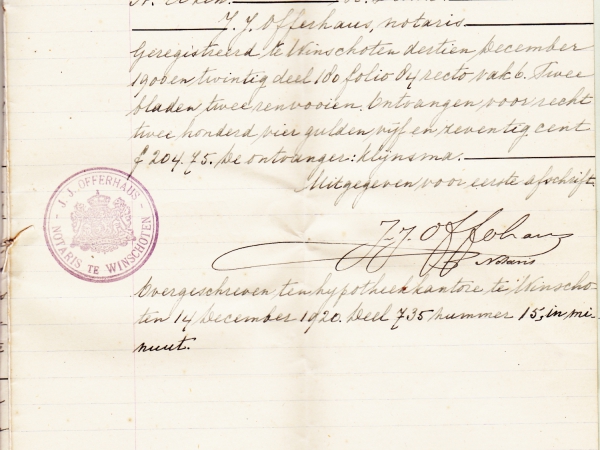 J. J. Offerhaus, notaris
Geregistreerd te Winschoten dertien December
1900 en twintig deel 100 folio 84 recto vak 6. Twee
bladen twee renvooien. Ontvangen voor recht
twee honderd vier gulden vijf en zeventig cent
f 204,75. De ontvanger: Klijnsma.
Uitgegeven voor eerste afschrift.
J. J. OFFERHAUS
NOTARIS TE WINSCHOTEN
J. J. Offerhaus
Notaris
Overgeschreven ten hypotheekkantore te Winscho-
ten 14 December 1920. Deel 735 nummer 15, in mi-
nuut.